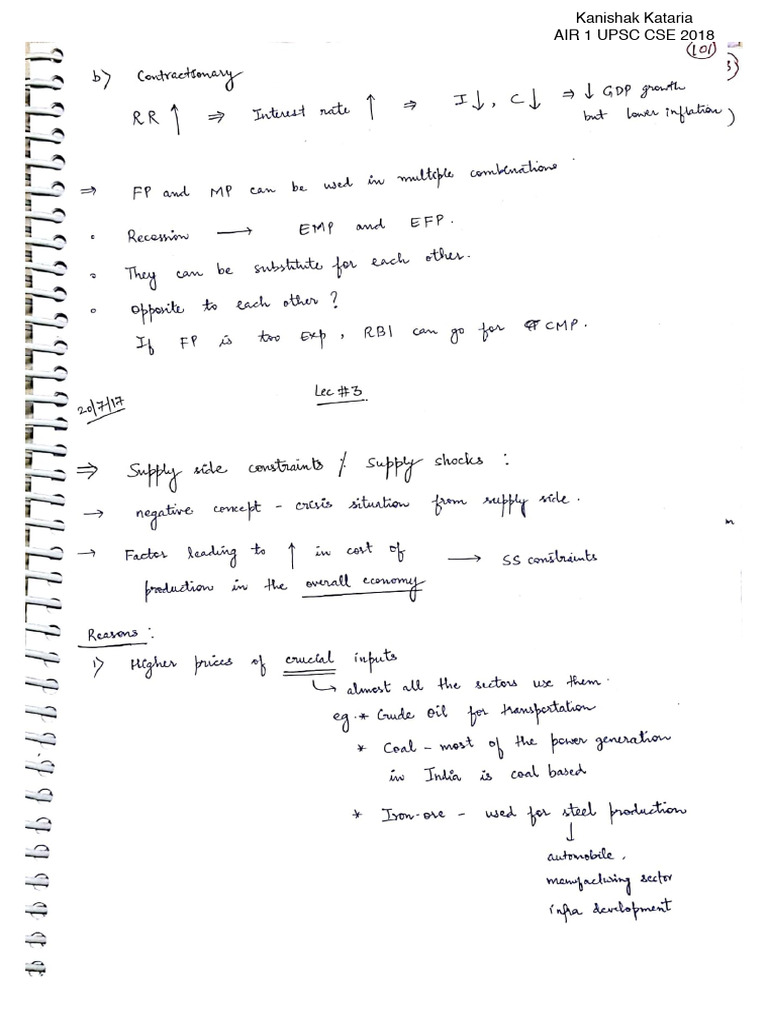 Kanishak Kataria
AIR 1 UPSC CSE 2018
101
3)
b) Contractionary
RR ↑ ⇒ Interest rate ↑ ⇒ I↓, C↓ ⇒ ↓ GDP growth
but lower inflation)
⇒ FP and MP can be used in multiple combinations.
• Recession → EMP and EFP.
• They can be substitute for each other.
• Opposite to each other?
If FP is too Exp, RBI can go for CMP.
20/7/17
Lec #3
⇒ Supply side constraints / Supply shocks :
→ negative concept - crisis situation from supply side.
→ Factor leading to ↑ in cost of
production in the overall economy → SS constraints
Reasons :
1) Higher prices of crucial inputs
↳ almost all the sectors use them.
eg. * Crude Oil for transportation
* Coal - most of the power generation
in India is coal based
* Iron-ore - used for steel production
↓
automobile,
manufacturing sector
infra development